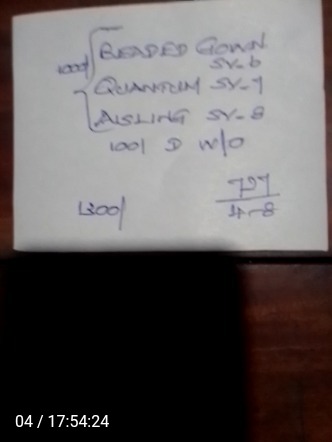 BEADED GOWN
SY-6
1000/
QUANTUM SY-7
AISLING SY-8
100/ D W/O
1300/
797
4-8
04 / 17:54:24